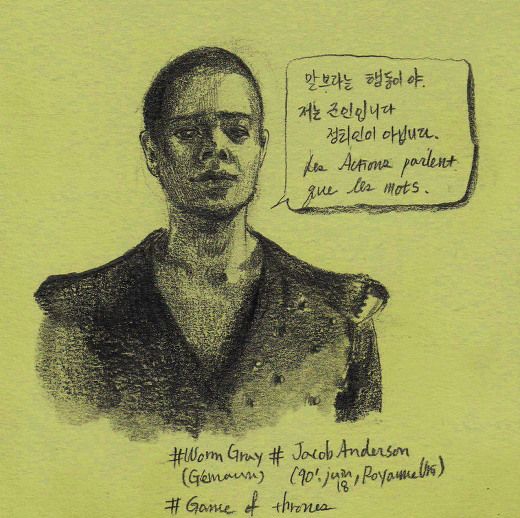 말보다는 행동이야.
저는 군인입니다
정치인이 아닙니다.
Les Actions parlent
que les mots.
#Worm Gray # Jacob Anderson
(Gémaux) (90'. juin, Royaume
18
# Game of thrones